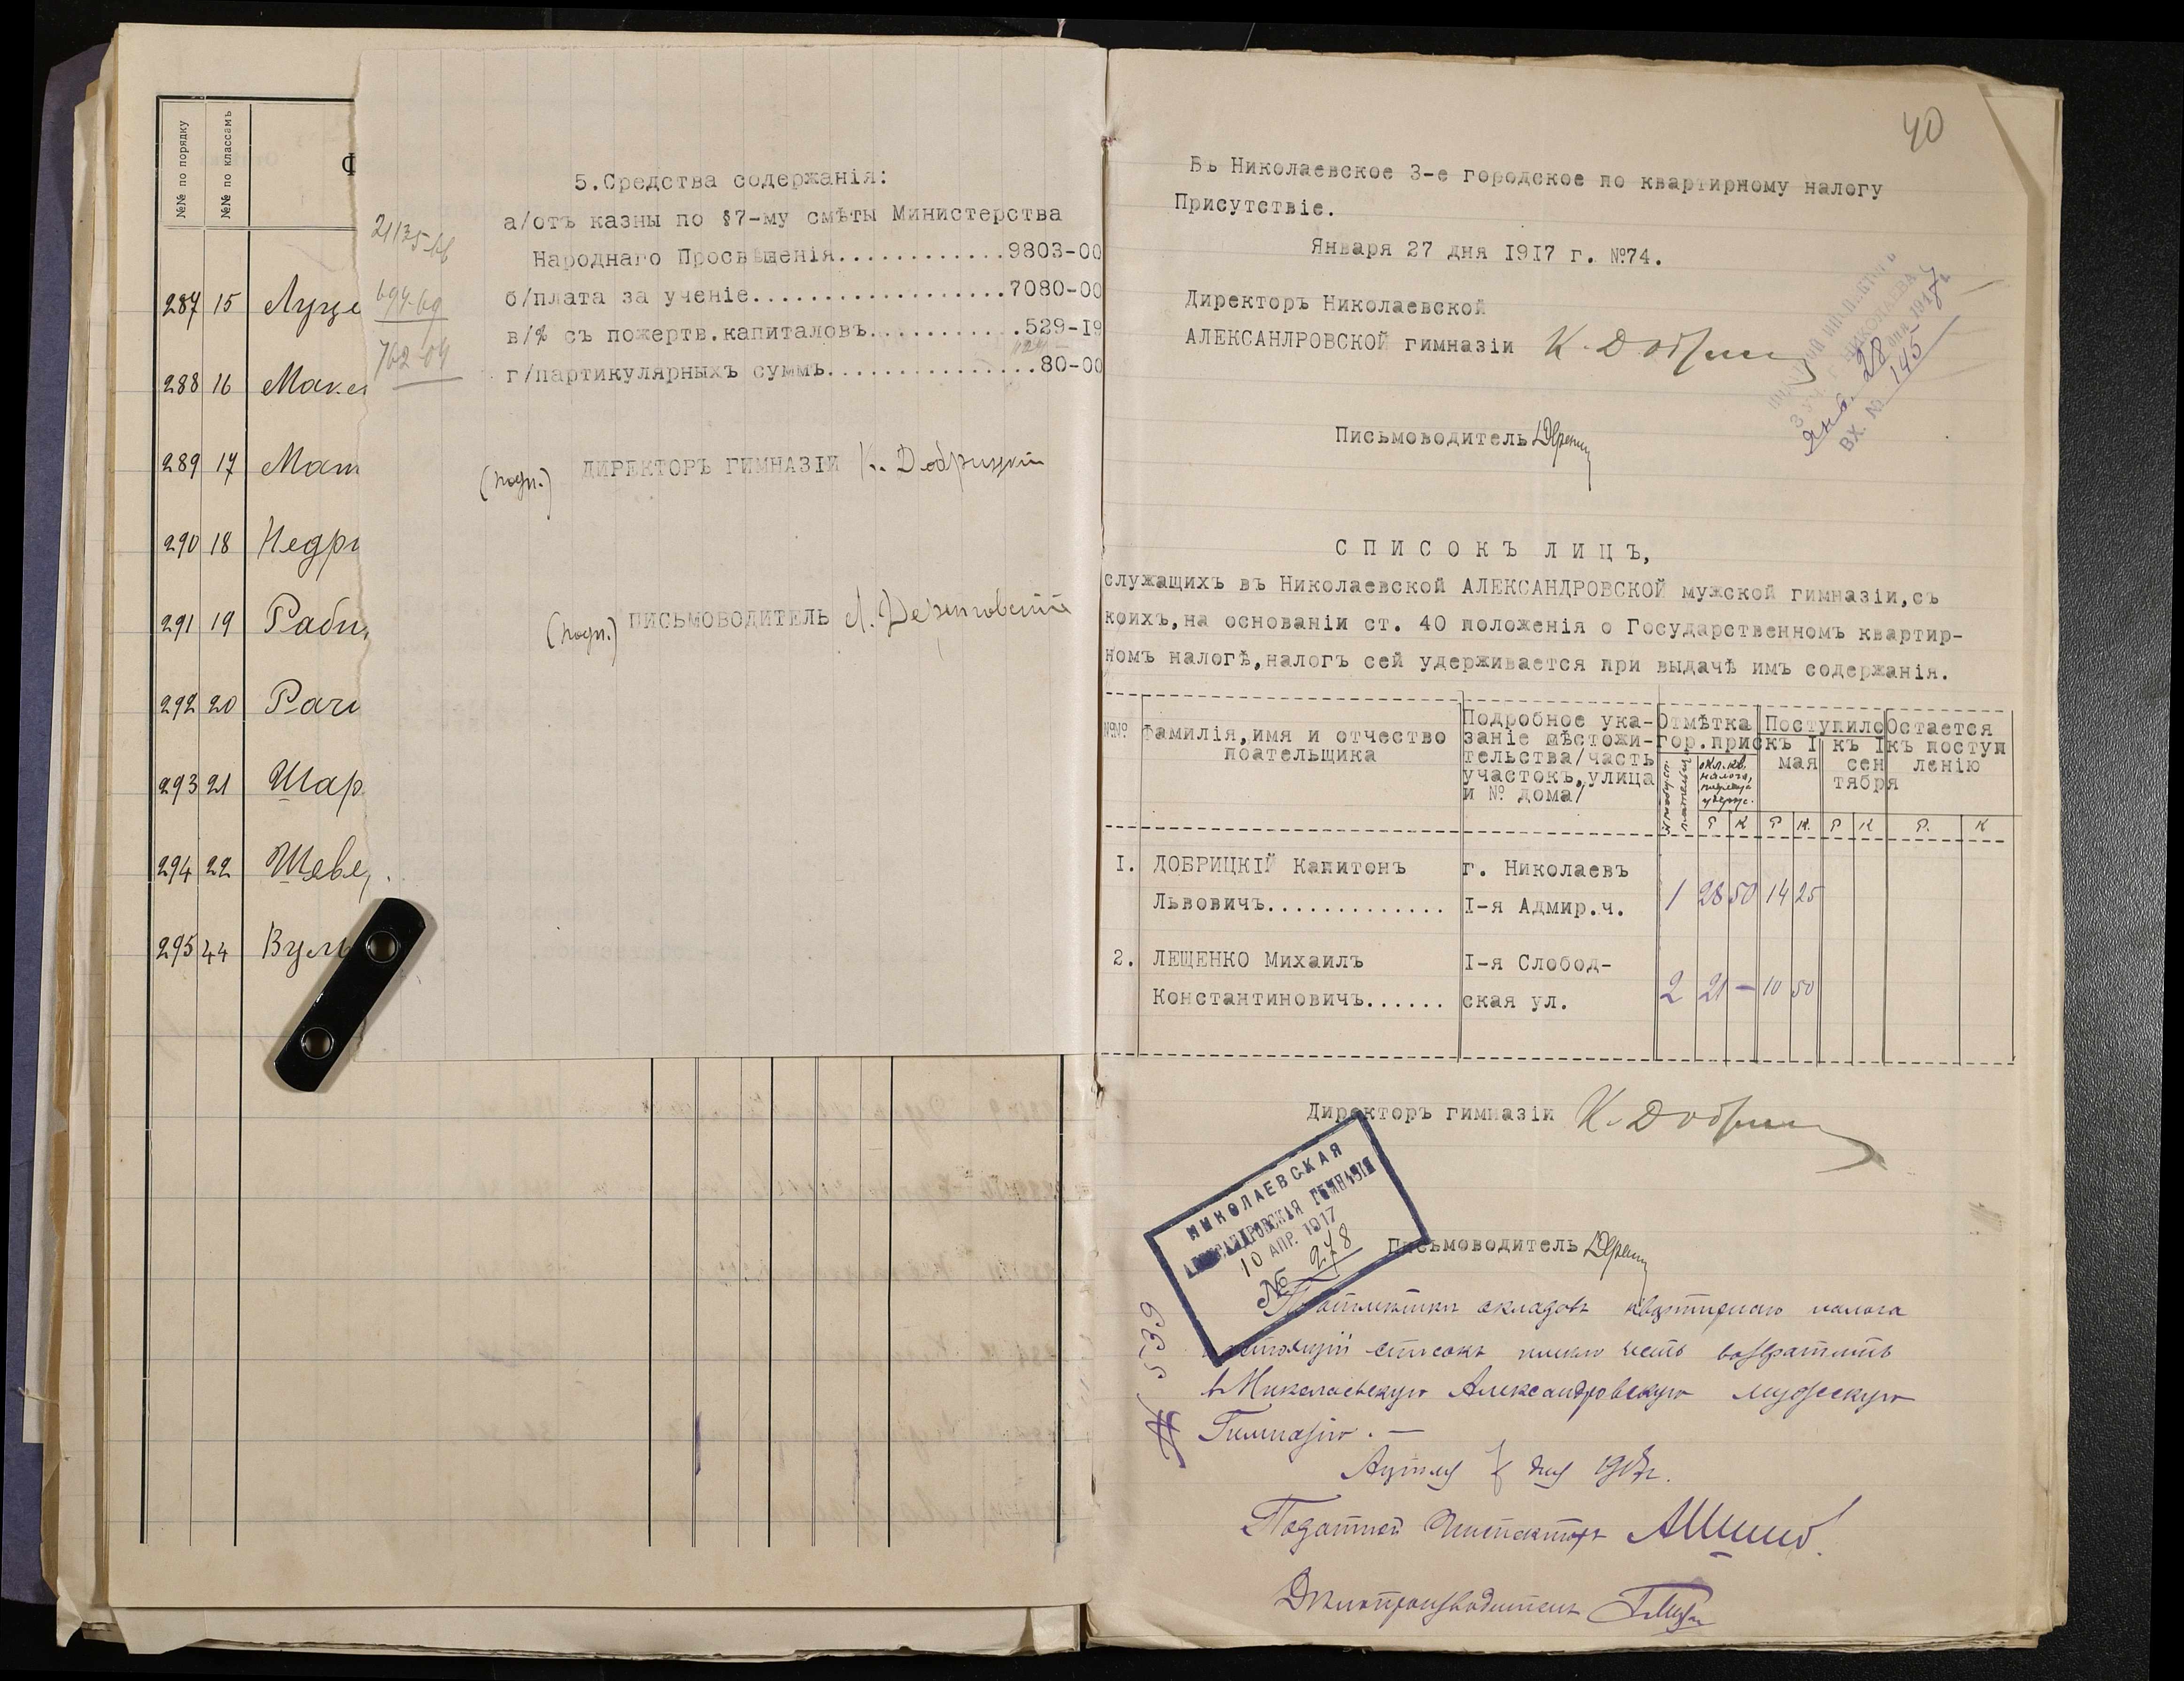 №№ по порядку
№№ по классамъ
Ф
287 15 Луце
288 16 Макс
289 17 Мат
290 18 Недри
291 19 Раби
292 20 Рачи
293 21 Шар
294 22 Шевел
295 44 Вуль
694-69
702-04
5.Средства содержанія:
а/отъ казны по §7-му смѣты Министерства
Народнаго Просвѣщенія.............9803-00
б/плата за ученіе...................7080-00
в/% съ пожертв.капиталовъ............529-19
г/партикулярныхъ суммъ................80-00
(подп.) ДИРЕКТОРЪ ГИМНАЗІИ К. Добрицкій
(подп.) ПИСЬМОВОДИТЕЛЬ
40
Въ Николаевское 3-е городское по квартирному налогу
Присутствіе.
Января 27 дня 1917 г. №74.
Директоръ Николаевской
АЛЕКСАНДРОВСКОЙ гимназіи К. Добриц
Янв. 28
ВХ. № 145
Письмоводитель
СПИСОКЪ ЛИЦЪ,
служащихъ въ Николаевской АЛЕКСАНДРОВСКОЙ мужской гимназіи,съ
коихъ,на основаніи ст. 40 положенія о Государственномъ квартир-
номъ налогѣ,налогъ сей удерживается при выдачѣ имъ содержанія.
№№ Фамилія,имя и отчество поательщика
Подробное ука-
заніе мѣстожи-
тельства/часть
участокъ,улица
и № дома/
Отмѣтка
гор.прис
Поступило
къ I мая
къ I сентября
Остается
къ поступ
ленію
Р К Р К Р К Р. К
I. ДОБРИЦКІЙ Капитонъ г. Николаевъ
Львовичъ.............. I-я Адмир.ч. 1 28 50 14 25
2. ЛЕЩЕНКО Михаилъ I-я Слобод-
Константиновичъ...... ская ул. 2 21 – 10 50
Директоръ гимназіи К. Добриц
НИКОЛАЕВСКАЯ
АЛЕКСАНДРОВСКАЯ ГИМНАЗІЯ
10 АПР. 1917
№ 278
Письмоводитель
окладовъ квартирнаго налога
списокъ имѣю честь возвратить
въ Николаевскую Александровскую мужскую
Гимназію. —
№ 539
Апрѣля 7 дня 1917 г.
Податной Инспекторъ
Дѣлопроизводитель